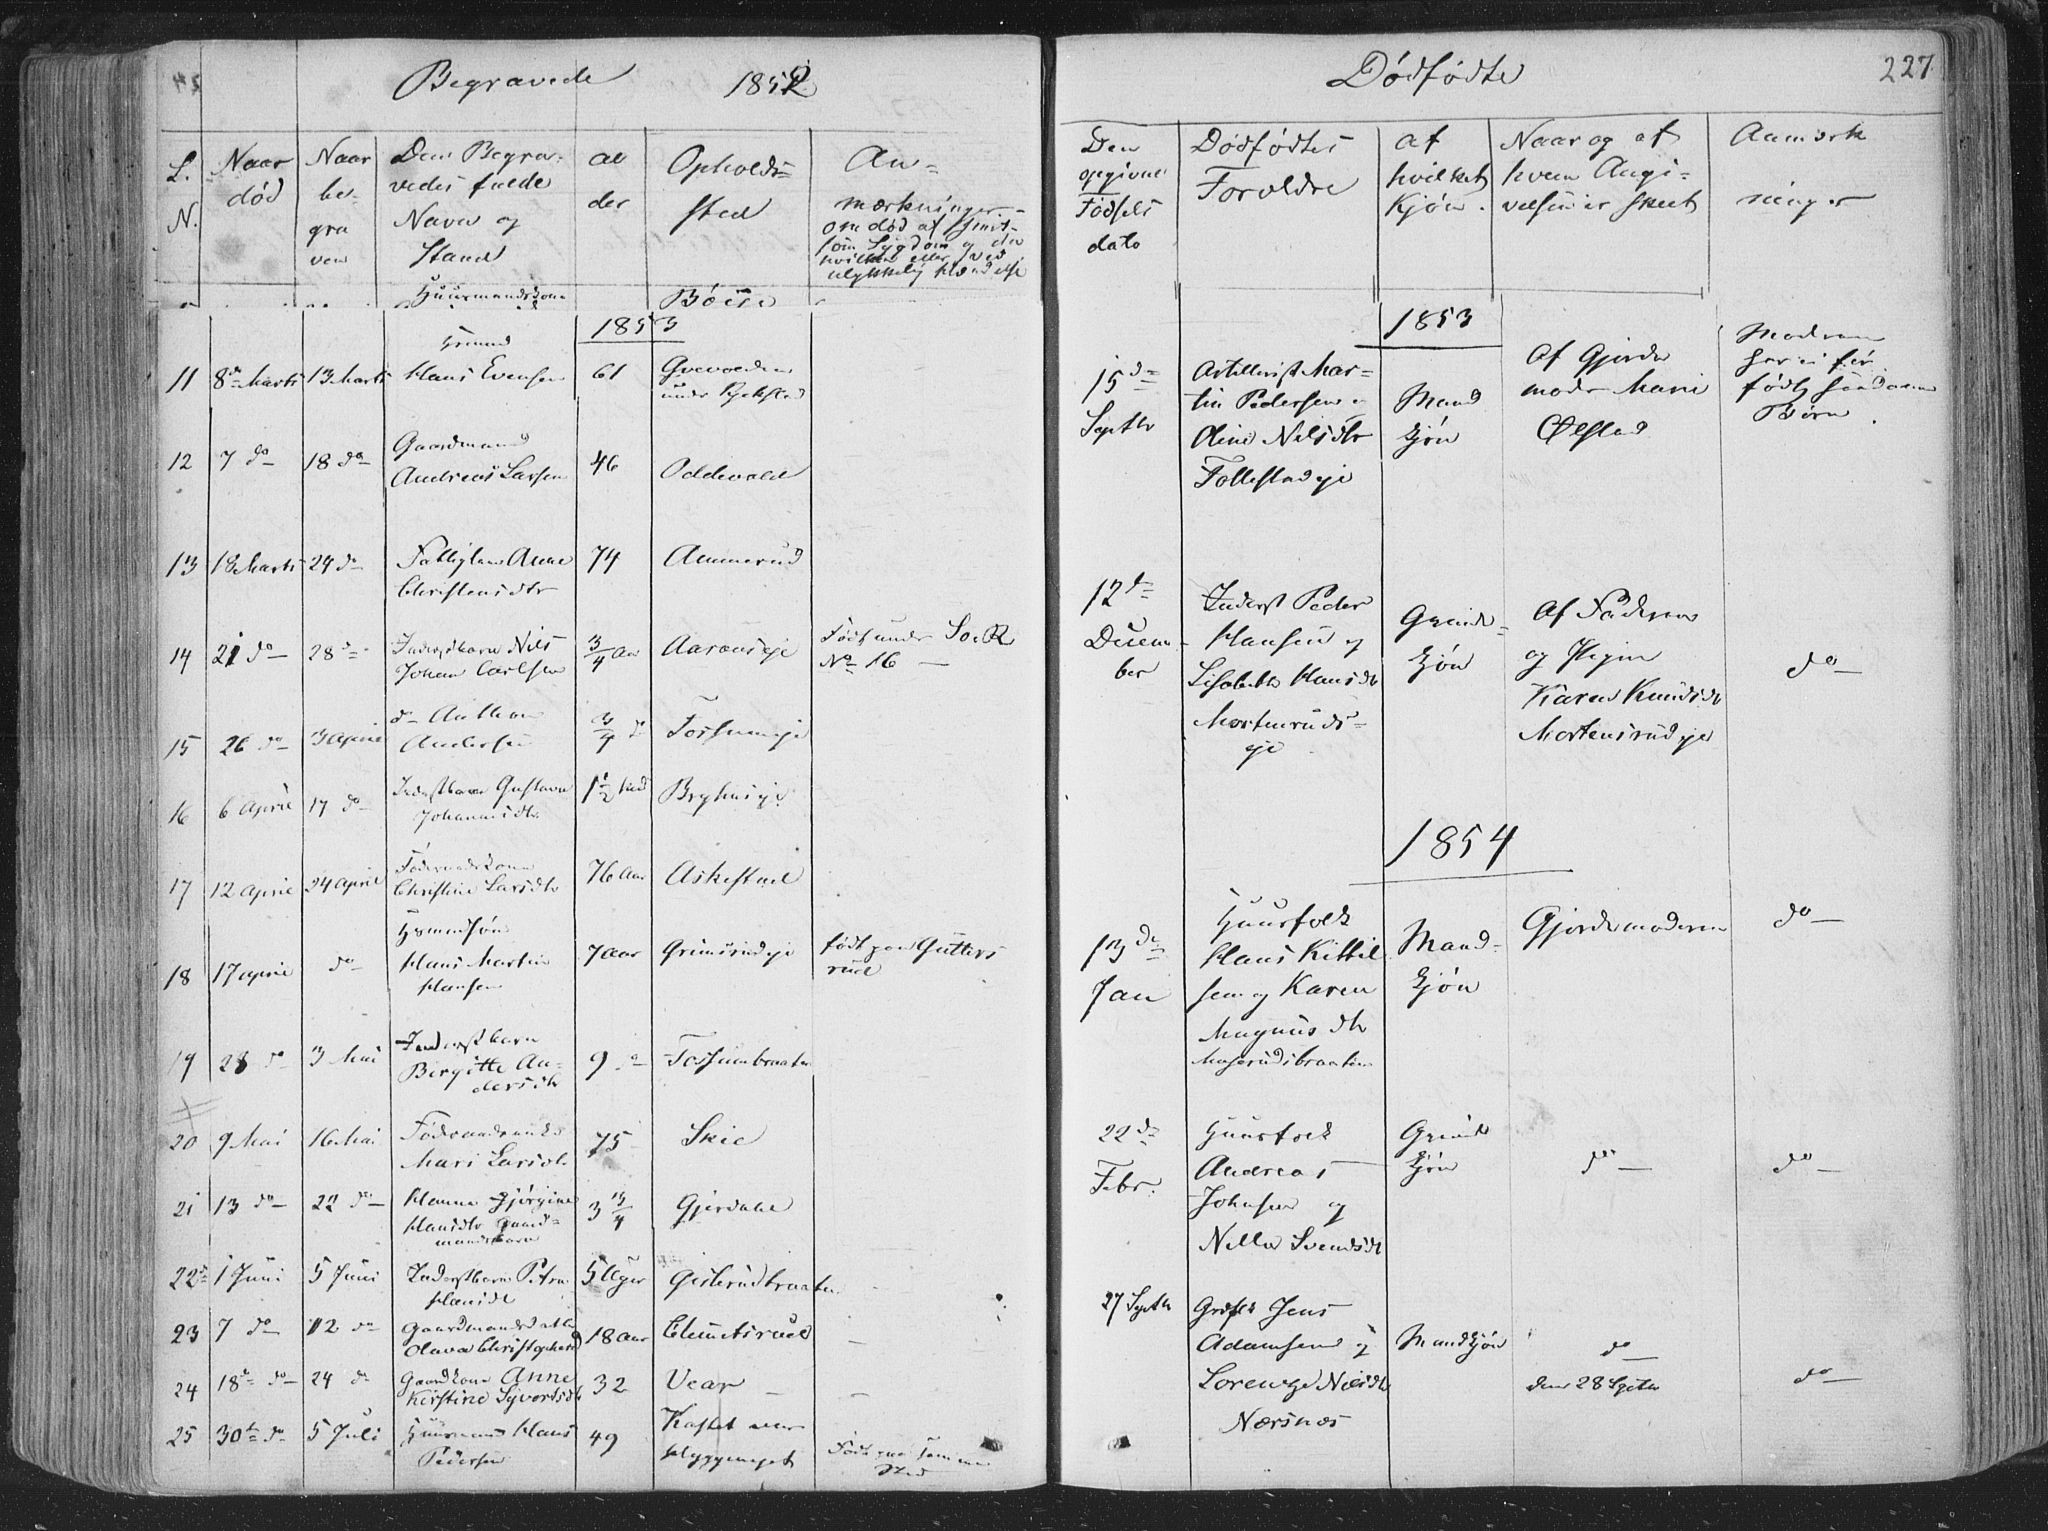 Begravede 1852
L. N.
Naar død
Naar be- gra ven
Dem Begra- vedes fulde Navn og Stand
al der
Opholds= sted
An= mærkninger
om død af smit-
som Sygdom og den
hvilken eller ved
ulykkelig hændelse
Huusmandskone
Böise
1853
11 8de Marts 13 Marts Hans Evensen 61
12 7 do 18 do Gaardmand Andreas Larsen 46 Oddevald
13 18 Marts 24 do Anne Christensdtr 74 Ammerud
14 21 do 28 do Inderstbarn Nils Johan Carlsen 3/4 Aar Aarouseje Født under No 16
15 26 do 3 April do Anthon Andersen 3/4 do Fossumeje
16 6 April 17 do Inderstbarn Gustava Johannisdtr 1 1/2
17 12 April 24 April Föderaadskone Christine Larsdtr 76 Aar Askestad
18 17 April do Hans Martin Hansen 7 Aar Grimsrudeje født paa Gutters rud
19 28 do 3 Mai Inderstbarn Birgitte An- dersdtr 9 do Fossumbraaten
20 9 Mai 16 Mai Föderaadsenke Mari Larsdtr 75 Skie
21 13 do 22 do Hanna Jörgine Hansdtr Gaard= mandsbarn 3 3/4 Gjerdale
22 1 Juni 5 Juni Inderstbarn Petra Hansdtr 5 Uger Gisterudbraaten
23 7 do 12 do Olava Christophersd 18 Aar Clemetsrud
24 18de do 24 do Gaardkone Anne Kirstine Syvertsdtr 32 Vear
25 30te do 5 Juli Huusmand Hans Pedersen 49 Født paa samme Sted
Dødfødte
227
Den opgivne Födsels dato
Dødfødtes Forældre
Af hvilket Kjön
Naar og af hvem Angi- velsen er skeet
Anmærk ninger
1853
15de Septbr
Artillerist Mar- tin Pedersen og Oline Nilsdtr Follestadeje
Mand kjön
Af Gjorde moder Marie Ølstad
Moderen har ei før født saadanne Börn
12te Decem- ber
Inderst Peder Hansen og Lisabeth Hansdtr Mortensruds= eje
Qvinde- kjön
Af Faderen og Pigen Karen Knudsdtr Mortensrudeje
do
1854
13de Jan
Huusfolk Hans Kittil sen og Karen Magnusdtr
Mand- kjön
Gjordemoderen
do
22de Febr.
Huusfolk Andreas Johnsen og Nella Svendsdtr
Qvinde kjön
do
do
27 Septbr
Grdfolk Jens Adamsen og Lorentze Nilsdtr Nærsnæs
Mandkjön
do
den 28 Septbr
do